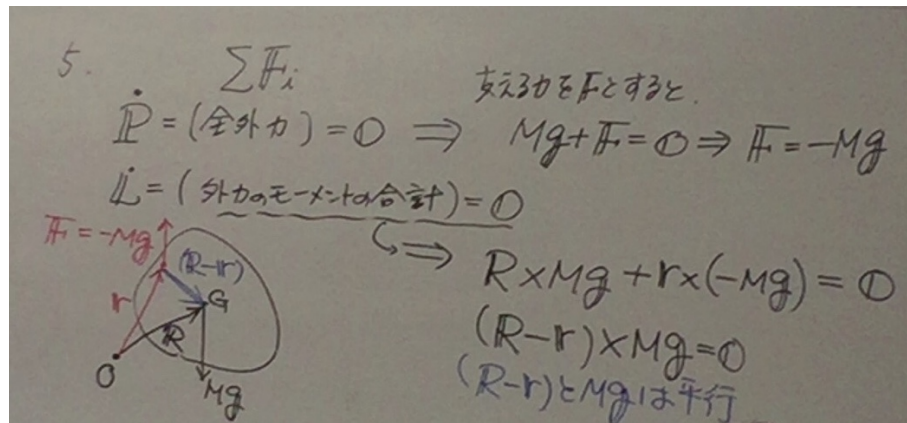 5.
ΣFi
支える力をFとすると、
Ṗ=(全外力)=0 ⇒ Mg+F=0 ⇒ F=-Mg
L̇=(外力のモーメントの合計)=0
⇒ R×Mg+r×(-Mg)=0
(R-r)×Mg=0
(R-r)とMgは平行
F=-Mg
(R-r)
r
G
R
O
Mg